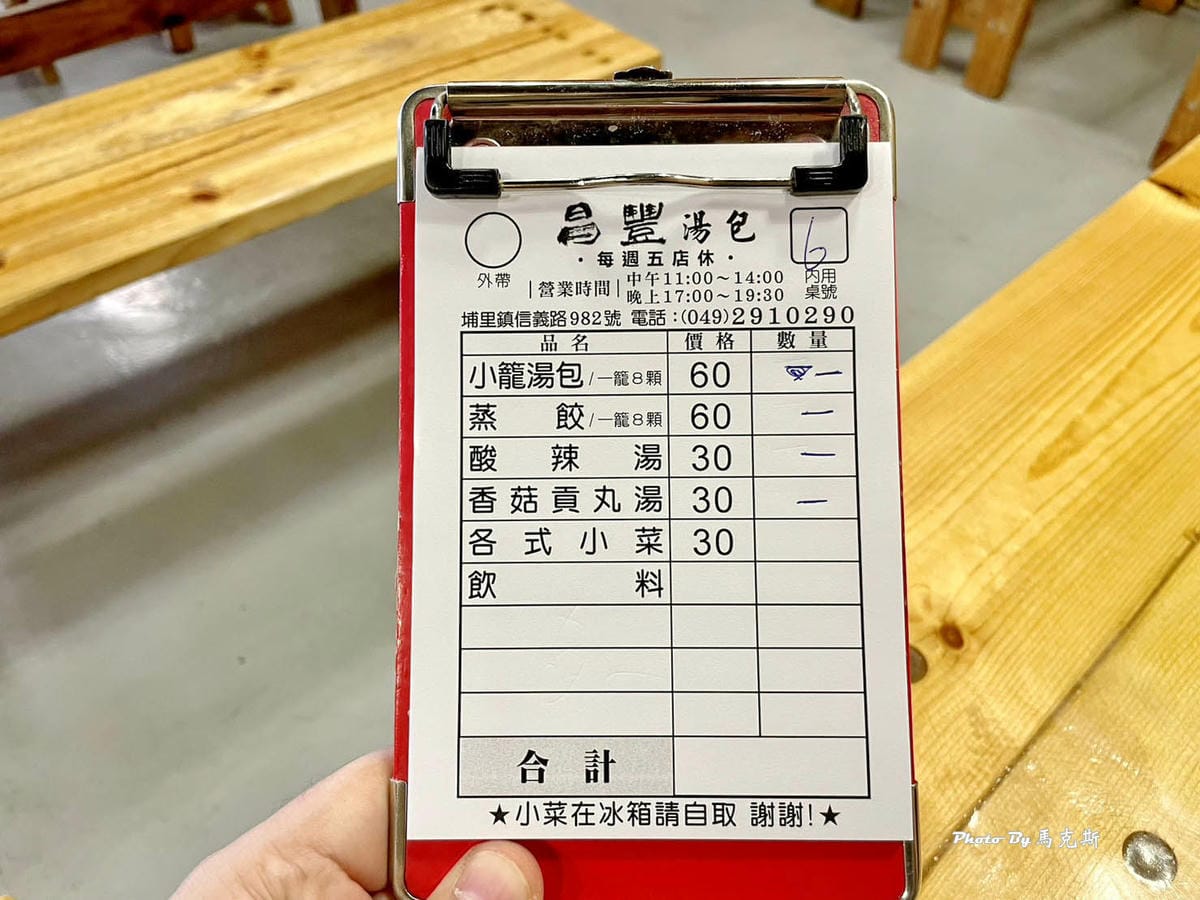 昌豐湯包
6
·每週五店休·
外帶
|營業時間| 中午11:00～14:00
晚上17:00～19:30
內用
桌號
埔里鎮信義路982號 電話:(049)2910290
品名 價格 數量
小籠湯包/一籠8顆 60 一
蒸餃/一籠8顆 60 一
酸辣湯 30 一
香菇貢丸湯 30 一
各式小菜 30
飲料
合計
★小菜在冰箱請自取 謝謝!★
Photo By 馬克斯